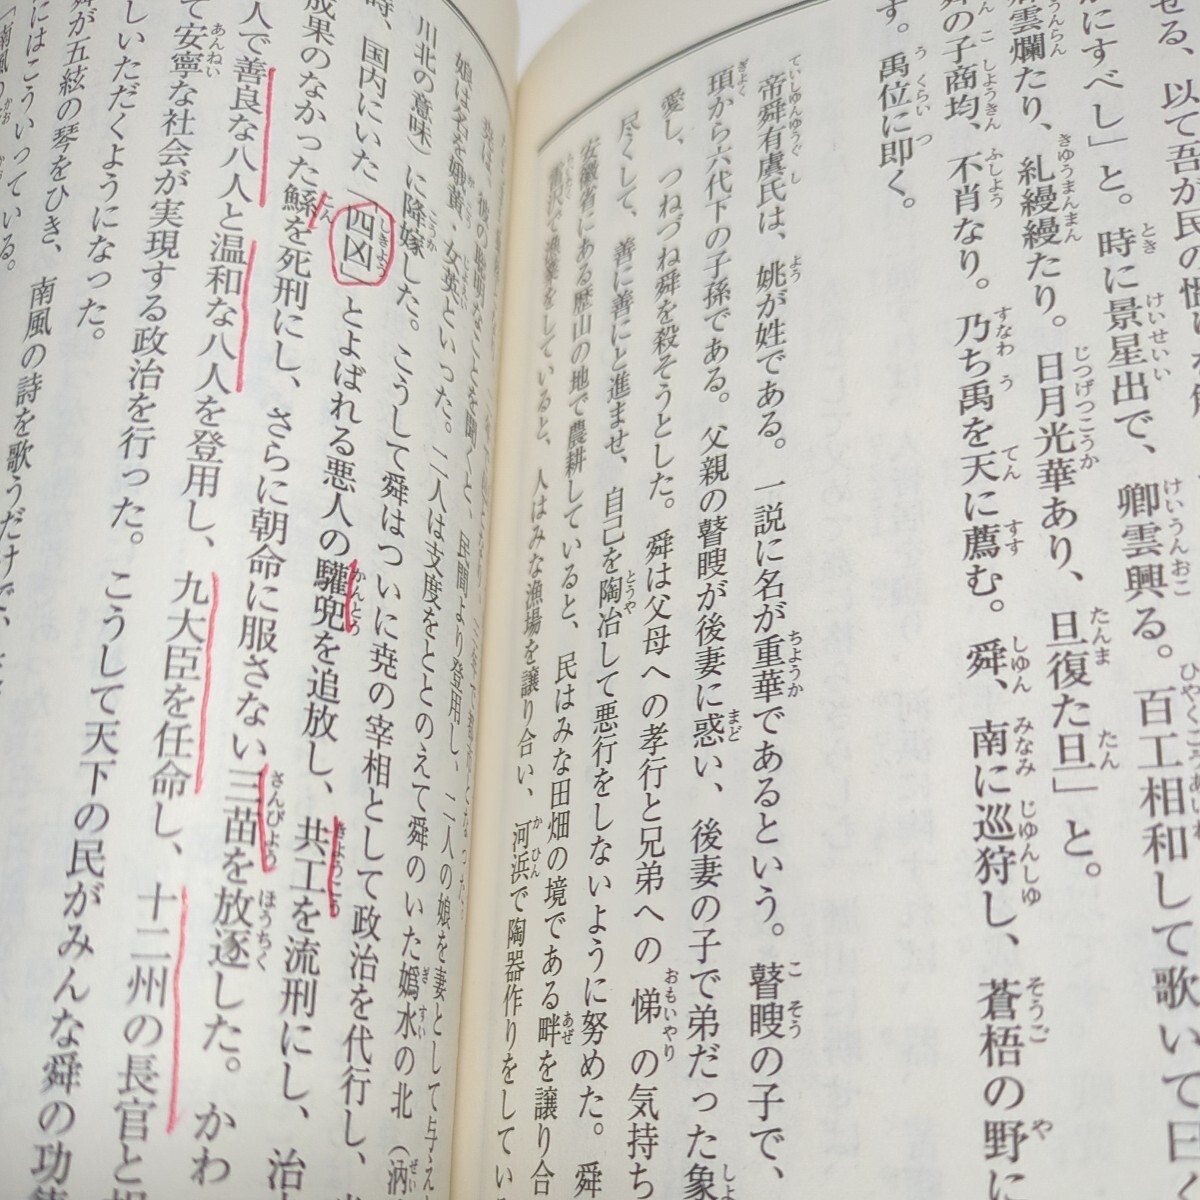 せる、以て吾が民の
にすべし」と。時に景星出で、卿雲興る。百工相和して歌いて曰く
雲爛たり、糺縵縵たり。日月光華あり、旦復た旦」と。
舜の子商均、不肖なり。乃ち禹を天に薦む。舜、南に巡狩し、蒼梧の野に
す。禹位に即く。
帝舜有虞氏は、姚が姓である。一説に名が重華であるという。瞽瞍の子で、
頊から六代下の子孫である。父親の瞽瞍が後妻に惑い、後妻の子で弟だった象
愛し、つねづね舜を殺そうとした。舜は父母への孝行と兄弟への悌の気持ち
尽くして、善に善にと進ませ、自己を陶冶して悪行をしないように努めた。舜
安徽省にある歴山の地で農耕していると、民はみな田畑の境である畔を譲り合
沢で漁業をしていると、人はみな漁場を譲り合い、河浜で陶器作りをしてい
の聡明なことを聞くと、民間より登用し、二人の娘を妻として与え
娘は名を娥黄・女英といった。二人は支度をととのえて舜のいた嬀水の北（汭
川北の意味）に降嫁した。こうして舜はついに尭の宰相として政治を代行し、
時、国内にいた「四凶」とよばれる悪人の驩兜を追放し、共工を流刑にし、治
成果のなかった鯀を死刑にし、さらに朝命に服さない三苗を放逐した。かわ
人で善良な八人と温和な八人を登用し、九大臣を任命し、十二州の長官と
て安寧な社会が実現する政治を行った。こうして天下の民がみんな舜の功
しいただくようになった。
舜が五絃の琴をひき、南風の詩を歌うだけで、
にはこういっている。
「南風の